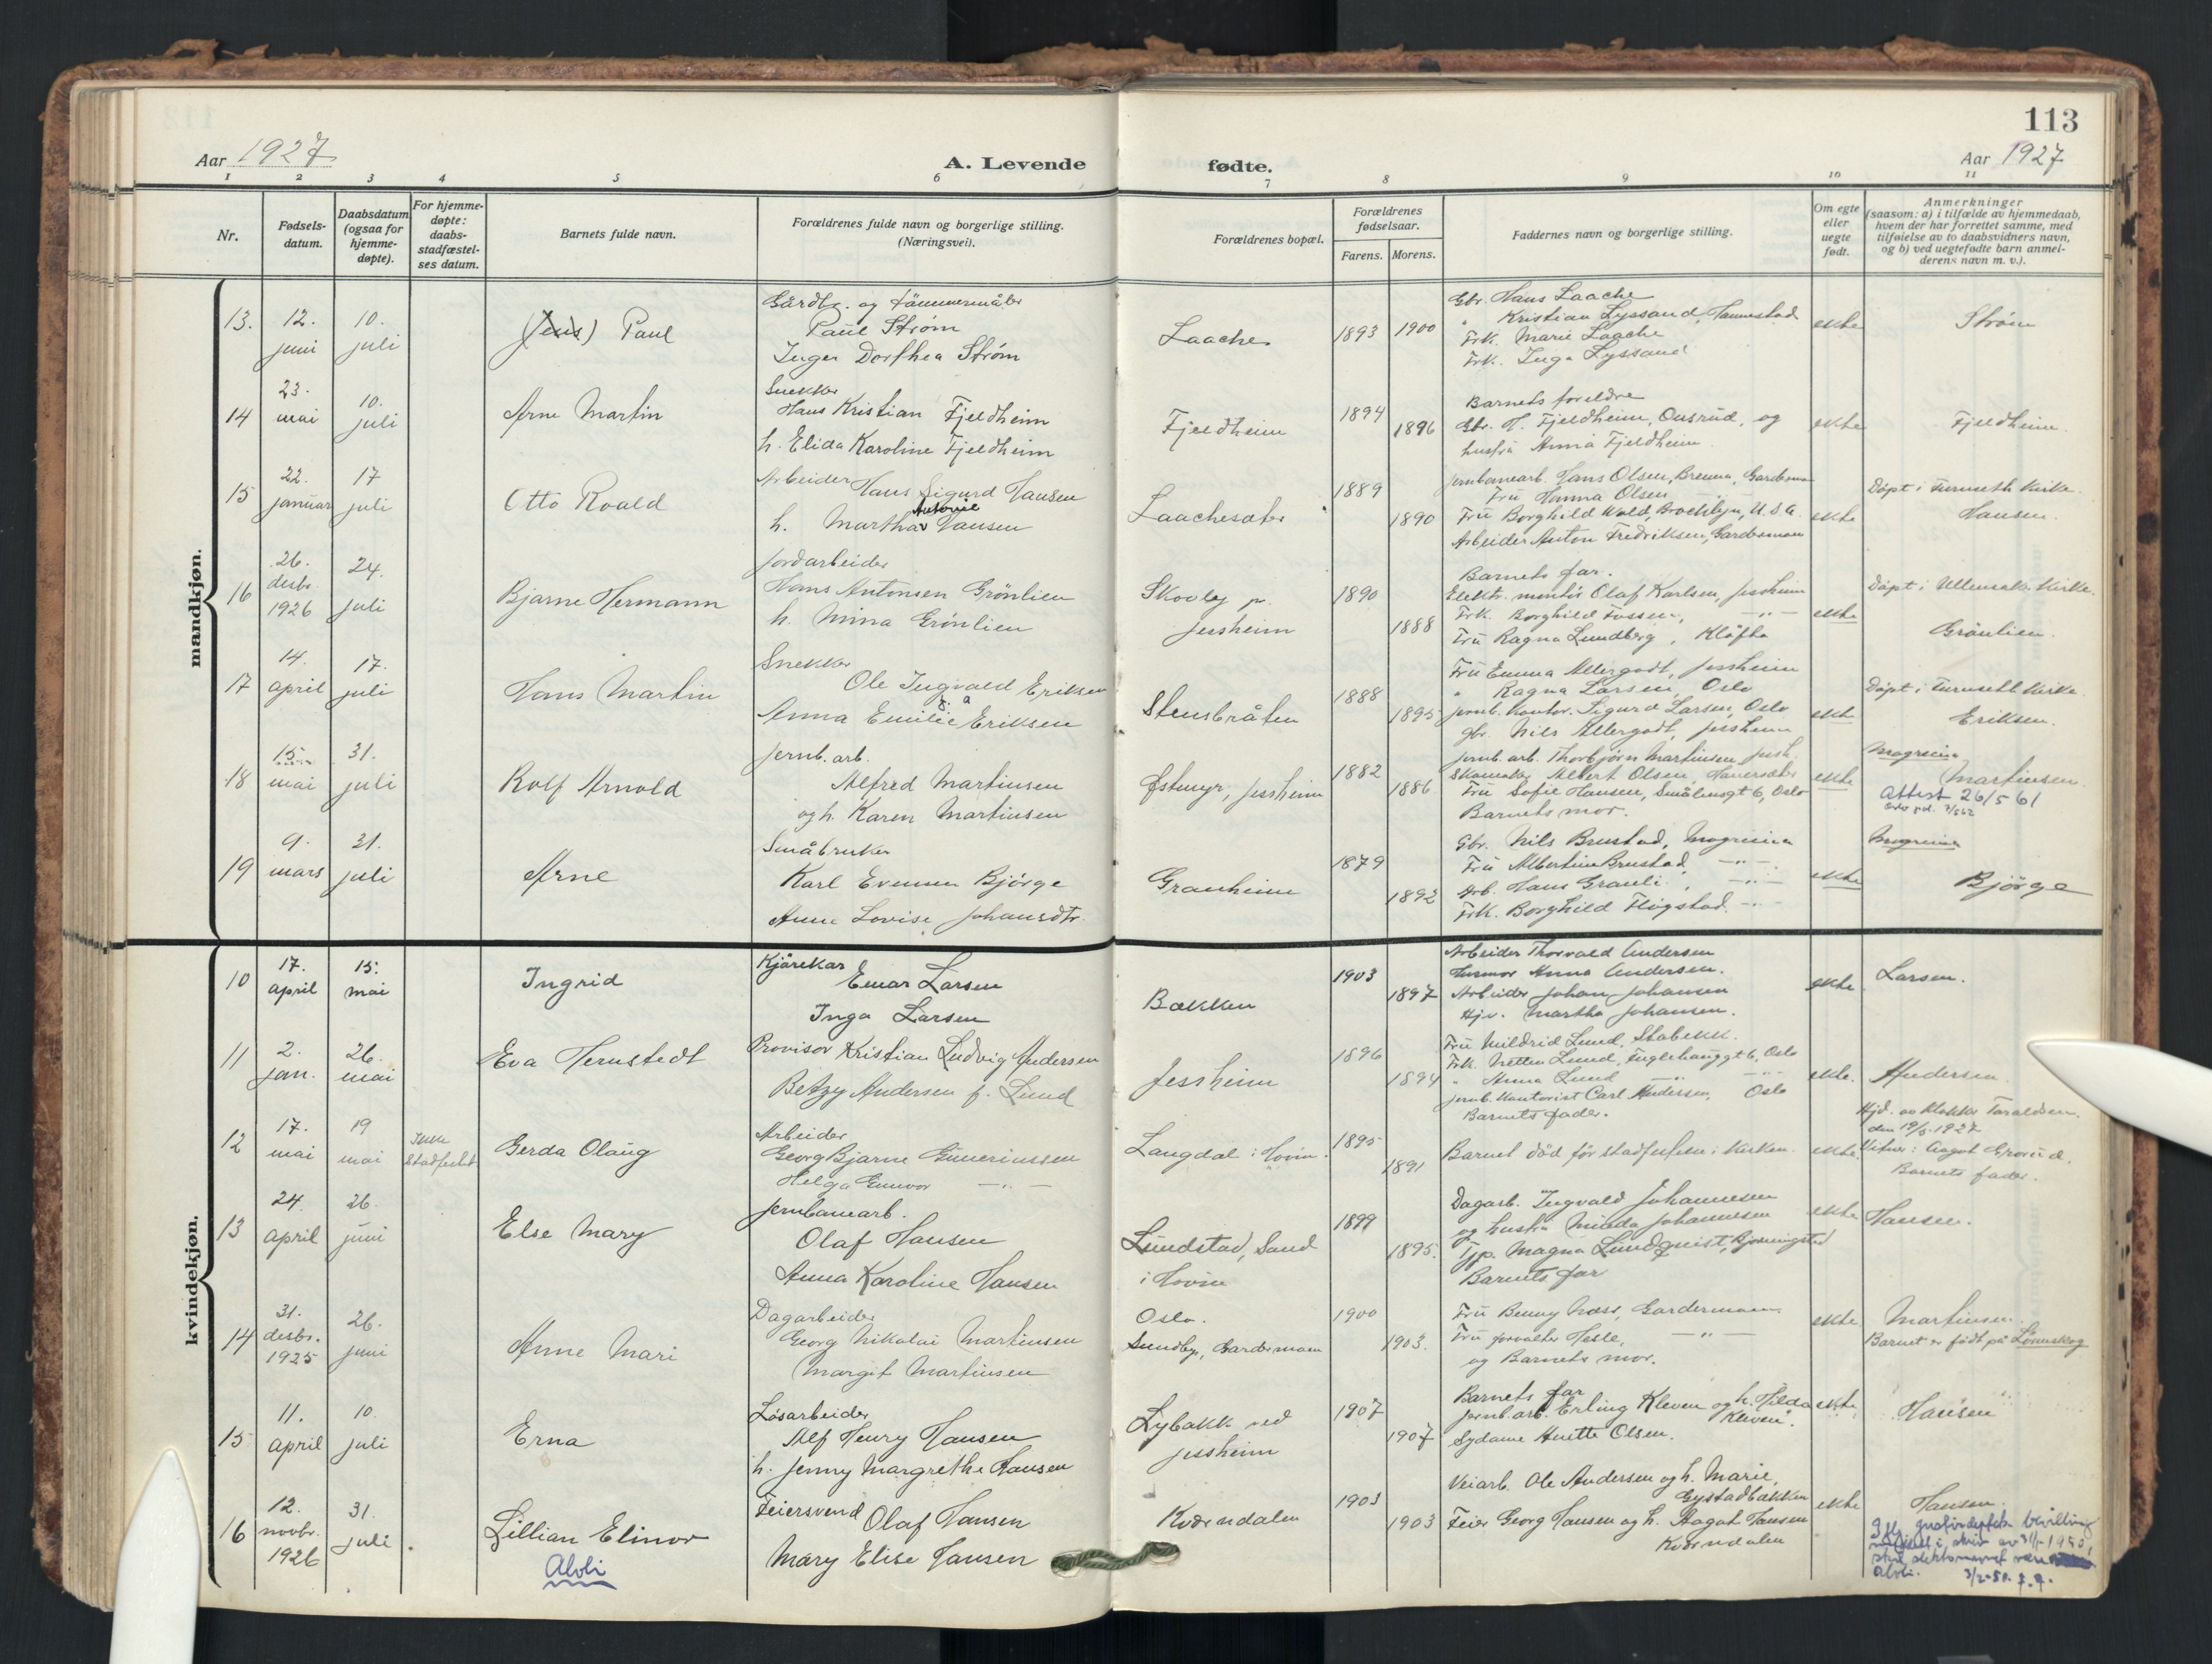 113
Aar 1927
A. Levende
fødte.
Aar 1927
1 2 3 4 5 6 7 8 9 10 11
Nr.
Fødsels-
datum.
Daabsdatum
(ogsaa for
hjemme-
døpte).
For hjemme-
døpte:
daabs-
stadfæstel-
ses datum.
Barnets fulde navn.
Forældrenes fulde navn og borgerlige stilling.
(Næringsvei).
Forældrenes bopæl.
Forældrenes
fødselsaar.
Farens. Morens.
Faddernes navn og borgerlige stilling.
Om egte
eller
uegte
født.
Anmerkninger
(saasom: a) i tilfælde av hjemmedaab,
hvem der har forrettet samme, med
tilføielse av to daabsvidners navn,
og b) ved uegtefødte barn anmel-
derens navn m. v.).
mandkjøn.
13.
12.
juni
10.
juli
(Jens) Paul
Gårdbr. og tömmermåler
Paul Strøm
Inger Dorthea Strøm
Laache
1893 1900
Gbr. Hans Laache
" Kristian Lyssand, Tannestad
Frk. Marie Laache
Frk. Inga Lyssand
ekte
Strøm
14
23.
mai
10.
juli
Arne Martin
Snekker
Hans Kristian Fjeldheim
h. Elida Karoline Fjeldheim
Fjeldheim
1894
1896
Barnets foreldre
Gbr. H. Fjeldheim, Onsrud, og
hustru Anna Fjeldheim
ekte
Fjeldheim.
15
22.
januar
17
juli
Otto Roald
Arbeider Hans Sigurd Hansen
Antonie
h. Martha Hansen
Laachesæter
1889
1890
Jernbanearb. Hans Olsen, Brenna, Garderm
Fru Hanna Olsen
Fru Borghild Wold, Brocklyn, U.S.A.
Arbeider Anton Fredriksen, Gardermoen
ekte
Döpt i Furuseth kirke.
Hansen.
16
26.
desbr.
1926
24.
juli
Bjarne Hermann
Jordarbeider
Hans Antonsen Grönlien
h. Mina Grönlien
Skovly pr.
Jessheim
1890
1888
Barnets far.
Elektr. montör Olaf Karlsen, Jessheim
Frk. Borghild Fossen, —"—
Fru Ragna Lundberg, Kløfta
ekte
Döpt i Ullensak. Kirke.
Grönlien.
17
14.
april
17.
juli
Hans Martin
Snekker
Ole Ingvald Eriksen
Anna Emilie Eriksen
Stensbråten
1888
1895
Fru Emma Allergodt, Jessheim
" Ragna Larsen, Oslo
Jernb. kontor. Sigurd Larsen, Oslo
gbr. Nils Allergodt, Jessheim
ekte
Döpt i Furuseth Kirke.
Eriksen.
18
15.
mai
31.
juli
Rolf Arnold
Jernb. arb.
Alfred Martinsen
og h. Karen Martinsen
Østmyr, Jessheim
1882
1886
Jernb. arb. Thorbjörn Martinsen Jessh.
Skomaker Albert Olsen, Hanersæter
Fru Sofie Hansen, Smålensgt 6, Oslo
Barnets mor.
ekte
Mogreina
Martinsen.
Attest 26/5 61
19
9.
mars
31.
juli
Arne
Småbruker
Karl Evensen Bjørge
Anne Lovise Johansdtr.
Granheim
1879
1892
Gbr. Nils Brustad, Mogreina
Fru Albertine Brustad, —"—
Arb. Hans Granli, —"—
Frk. Borghild Flogstad —"—
ekte
Mogreina
Bjørge
kvindekjøn.
10
17.
april
15.
mai
Ingrid
Kjörekar
Einar Larsen
Inga Larsen
Bakken
1903
1897
Arbeider Thorvald Andersen
Husmor Anna Andersen.
Arbeider Johan Johansen
Hjv. Martha Johansen.
ekte
Larsen.
11
2.
jan.
26.
mai
Eva Hernstedt
Provisor Kristian Ludvig Andersen
Betzy Andersen f. Lund
Jessheim
1896
1894
Fru Mildrid Lund, Stabekk.
Frk. Netten Lund, Fuglehauggt 6, Oslo
" Anna Lund —"— —"—
Jernb. kontorist Carl Andersen, Oslo
Barnets fader.
ekte.
Andersen.
12
17.
mai
19
mai
Ikke
Stadfestet
Gerda Olaug
Arbeider
Georg Bjarne Gunneriussen
Helga Gunvor —"—
Langdal i Hovin.
1895
1891
Barnet död för stadfestelse i kirken.
ekte.
Hjd. av Klokker Taraldsen.
den 19/5 1927
Vitner: Aagot Grorud.
Barnets fader.
13
24.
april
26.
juni
Else Mary
Jernbanearb.
Olaf Hansen
Anna Karoline Hansen
Lundstad, Sand
i Hovin
1899
1895.
Dagarb. Ingvald Johannesen
og hustru Minda Johannesen
Tjp. Magna Lundquist, Bjerningstad
Barnets far
ekte
Hansen.
14
31.
desbr.
1925
26.
juni
Anne Mari
Dagarbeider
Georg Nikolai Martinsen
Margit Martinsen
Oslo.
Sundby, Gardermoen
1900
1903.
Fru Benny Næss, Gardermoen
Fru forvalter Hesle, —"—
og Barnets mor.
ekte
Martinsen.
Barnet er født på Lörenskog
15
11.
april
10
juli
Erna
Løsarbeider
Alf Henry Hansen
h. Jenny Margrethe Hansen
Lybakk ved
Jessheim
1907
1907
Barnets far
Jernb. arb. Erling Kleven og h. Hilda
Kleven.
Sydame Anette Olsen.
ekte
Hansen
16
12.
novbr.
1926
31.
juli
Lillian Elinor
Alvli
Feiersvend Olaf Hansen
Mary Elise Hansen
Kværndalen
1903
1903
Veiarb. Ole Andersen og h. Marie,
Gystadbakken
Feier Georg Hansen og h. Aagot Hansen
Kværndalen
ekte
Hansen.
bevilling
meddelt i skriv av 31/1-1950,
skal slektsnavnet være
Alvli. 3/2-50.